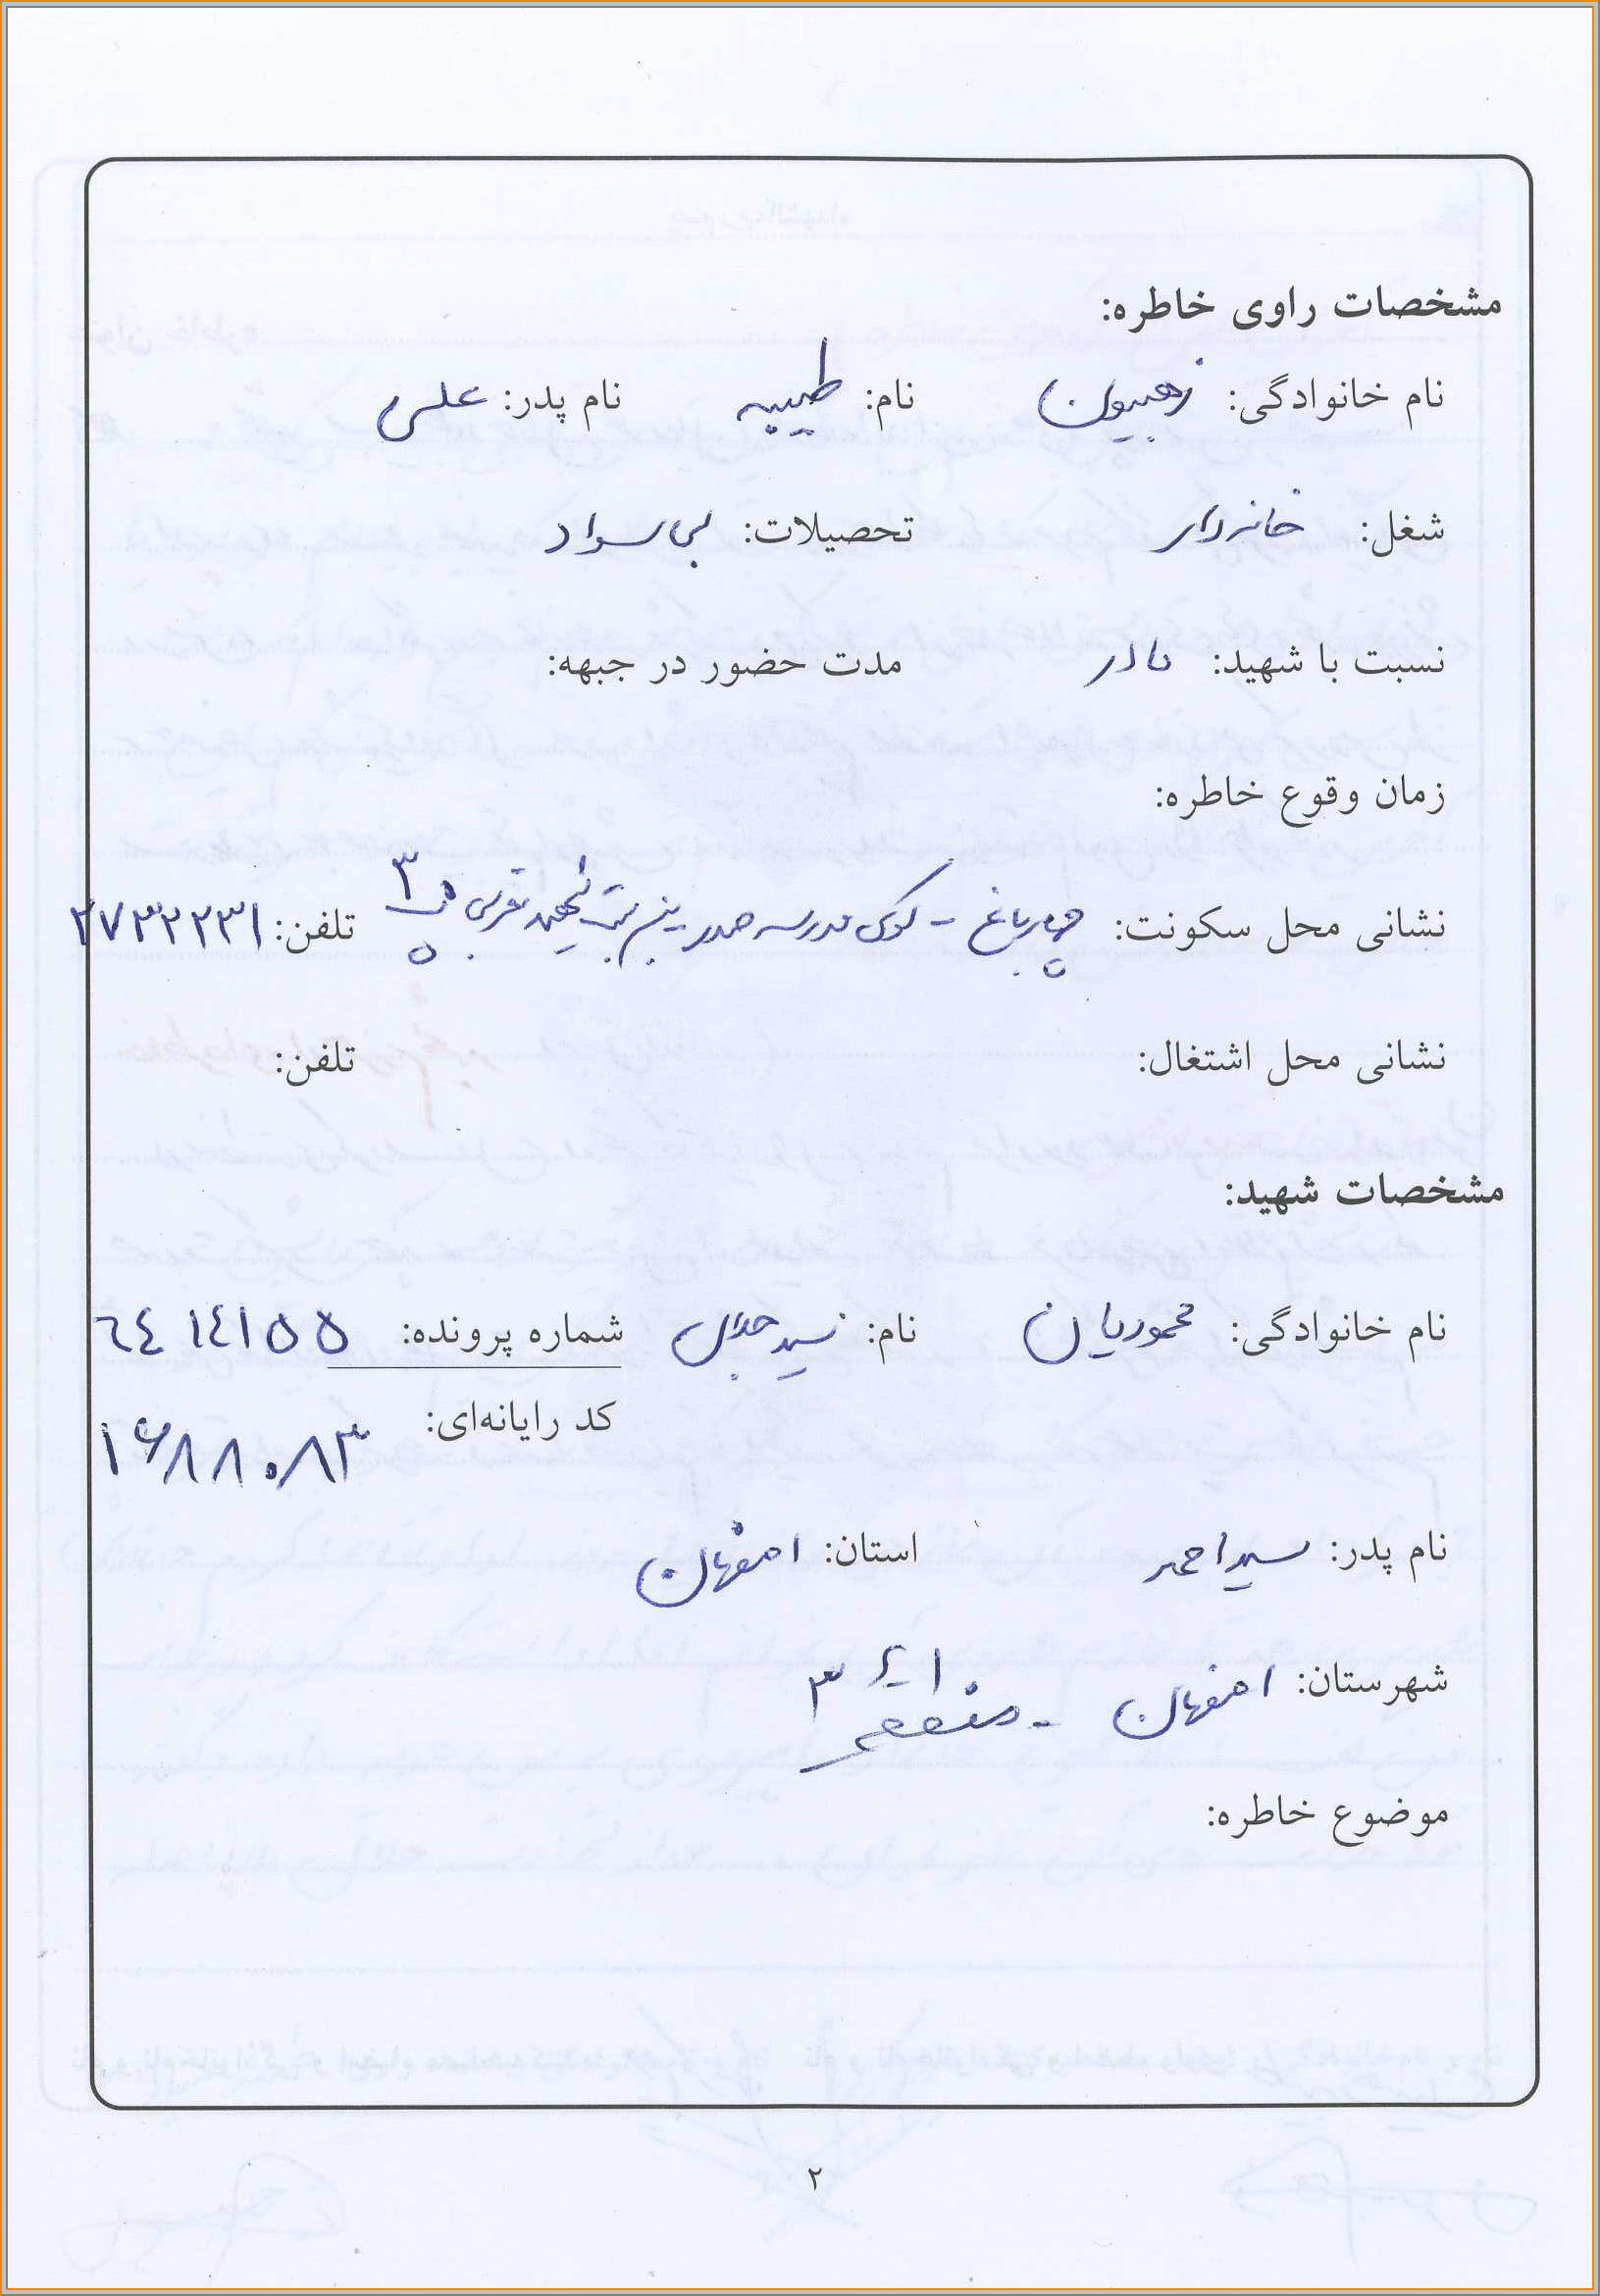 مشخصات راوی خاطره:
نام خانوادگی: زهبیون نام: طیبه نام پدر: علی
شغل: خانه‌دار تحصیلات: بی سواد
نسبت با شهید: مادر مدت حضور در جبهه:
زمان وقوع خاطره:
نشانی محل سکونت: چهارباغ - کوی مدرسه صدر بن بست شهید پ ۳ تلفن: ۲۷۳۲۲۳۱
نشانی محل اشتغال: تلفن:
مشخصات شهید:
نام خانوادگی: محموریان نام: سید جلال شماره پرونده: ٦٤١٤١٥٥
کد رایانه‌ای: ۱۶۸۸۰۸۳
نام پدر: سید احمد استان: اصفهان
شهرستان: اصفهان - منطقه ۳
موضوع خاطره:
۲